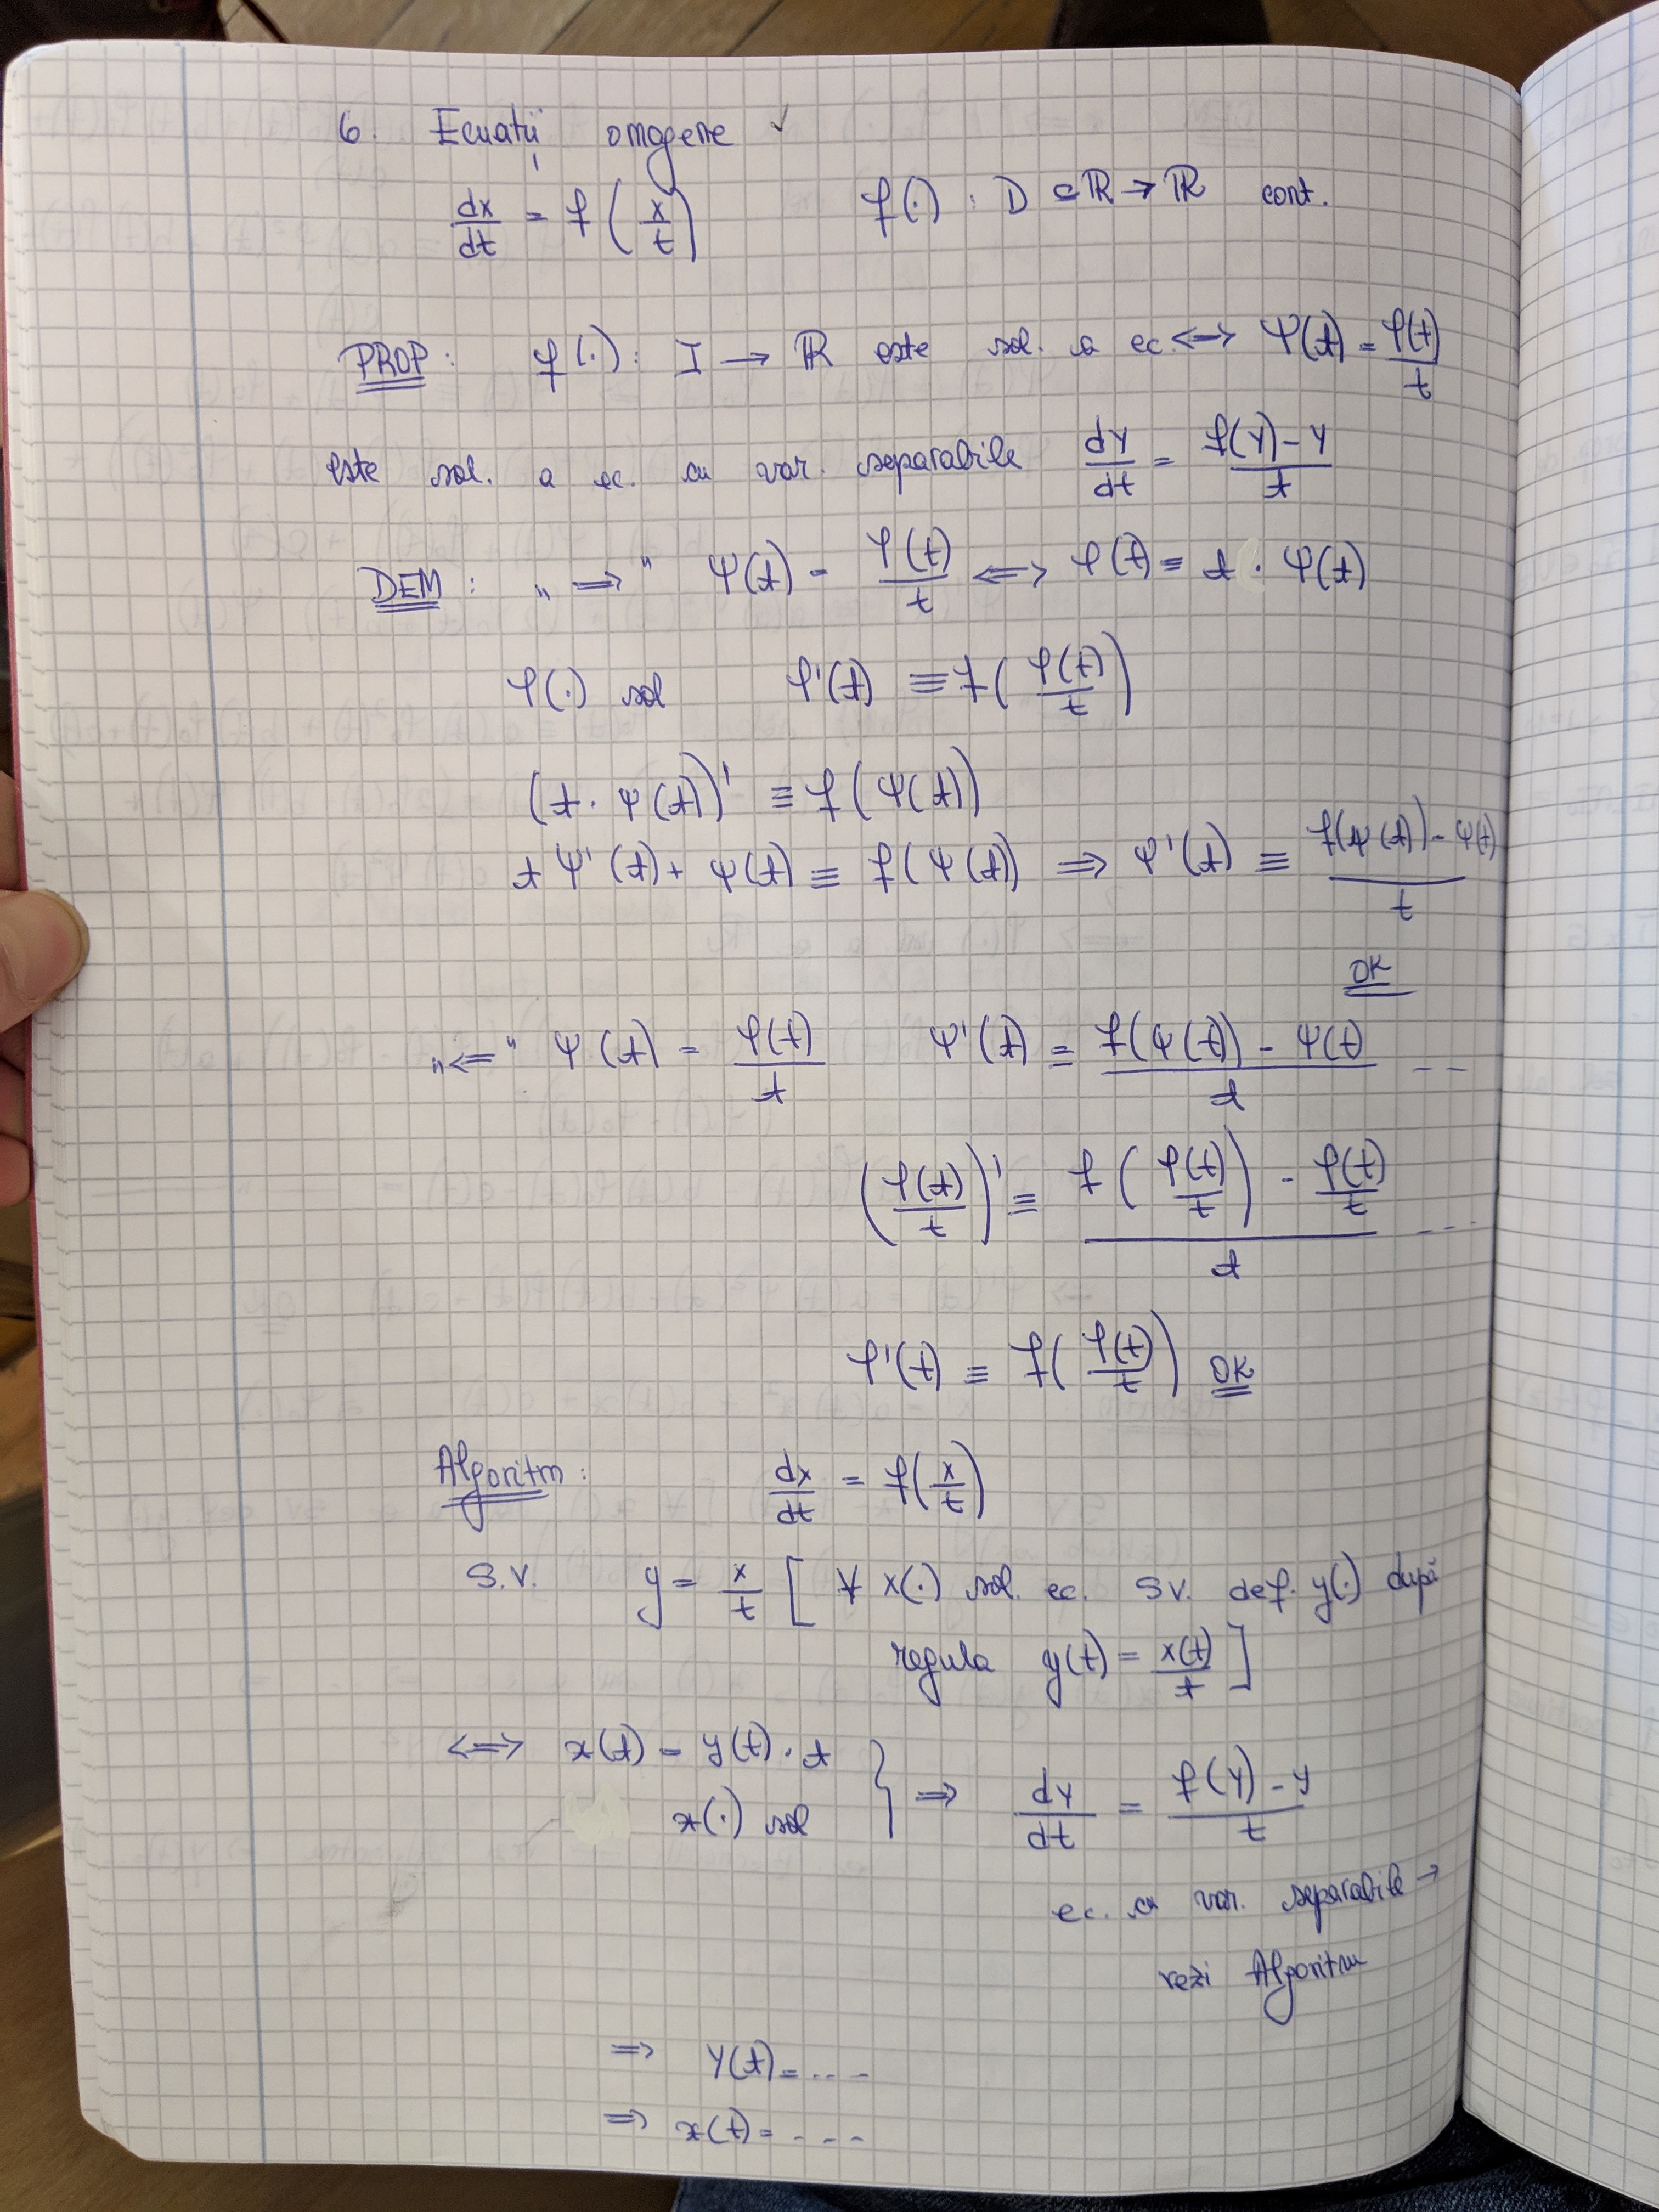 6. Ecuații omogene ✓
dx/dt = f(x/t)    f(·) : D ⊆ ℝ → ℝ cont.
PROP : φ(·) : I → ℝ este sol. a ec. ⟺ ψ(t) = φ(t)/t
este sol. a ec. cu var. separabile dy/dt = (f(y) - y)/t
DEM : „⟹" ψ(t) = φ(t)/t ⟺ φ(t) ≡ t · ψ(t)
φ(·) sol    φ'(t) ≡ f(φ(t)/t)
(t · ψ(t))' ≡ f(ψ(t))
t ψ'(t) + ψ(t) ≡ f(ψ(t)) ⟹ ψ'(t) ≡ (f(ψ(t)) - ψ(t))/t
OK
„⟸" ψ(t) = φ(t)/t    ψ'(t) = (f(ψ(t)) - ψ(t))/t - -
(φ(t)/t)' ≡ (f(φ(t)/t) - φ(t)/t)/t - - -
φ'(t) ≡ f(φ(t)/t) OK
Algoritm : dx/dt = f(x/t)
S.V. y = x/t [ ∀ x(·) sol. ec. SV. def. y(·) după
regula y(t) = x(t)/t ]
⟺ x(t) = y(t) · t
x(·) sol } ⟹ dy/dt = (f(y) - y)/t
ec. cu var. separabile →
vezi Algoritm
⟹ y(t) = . . - -
⟹ x(t) = - - - -